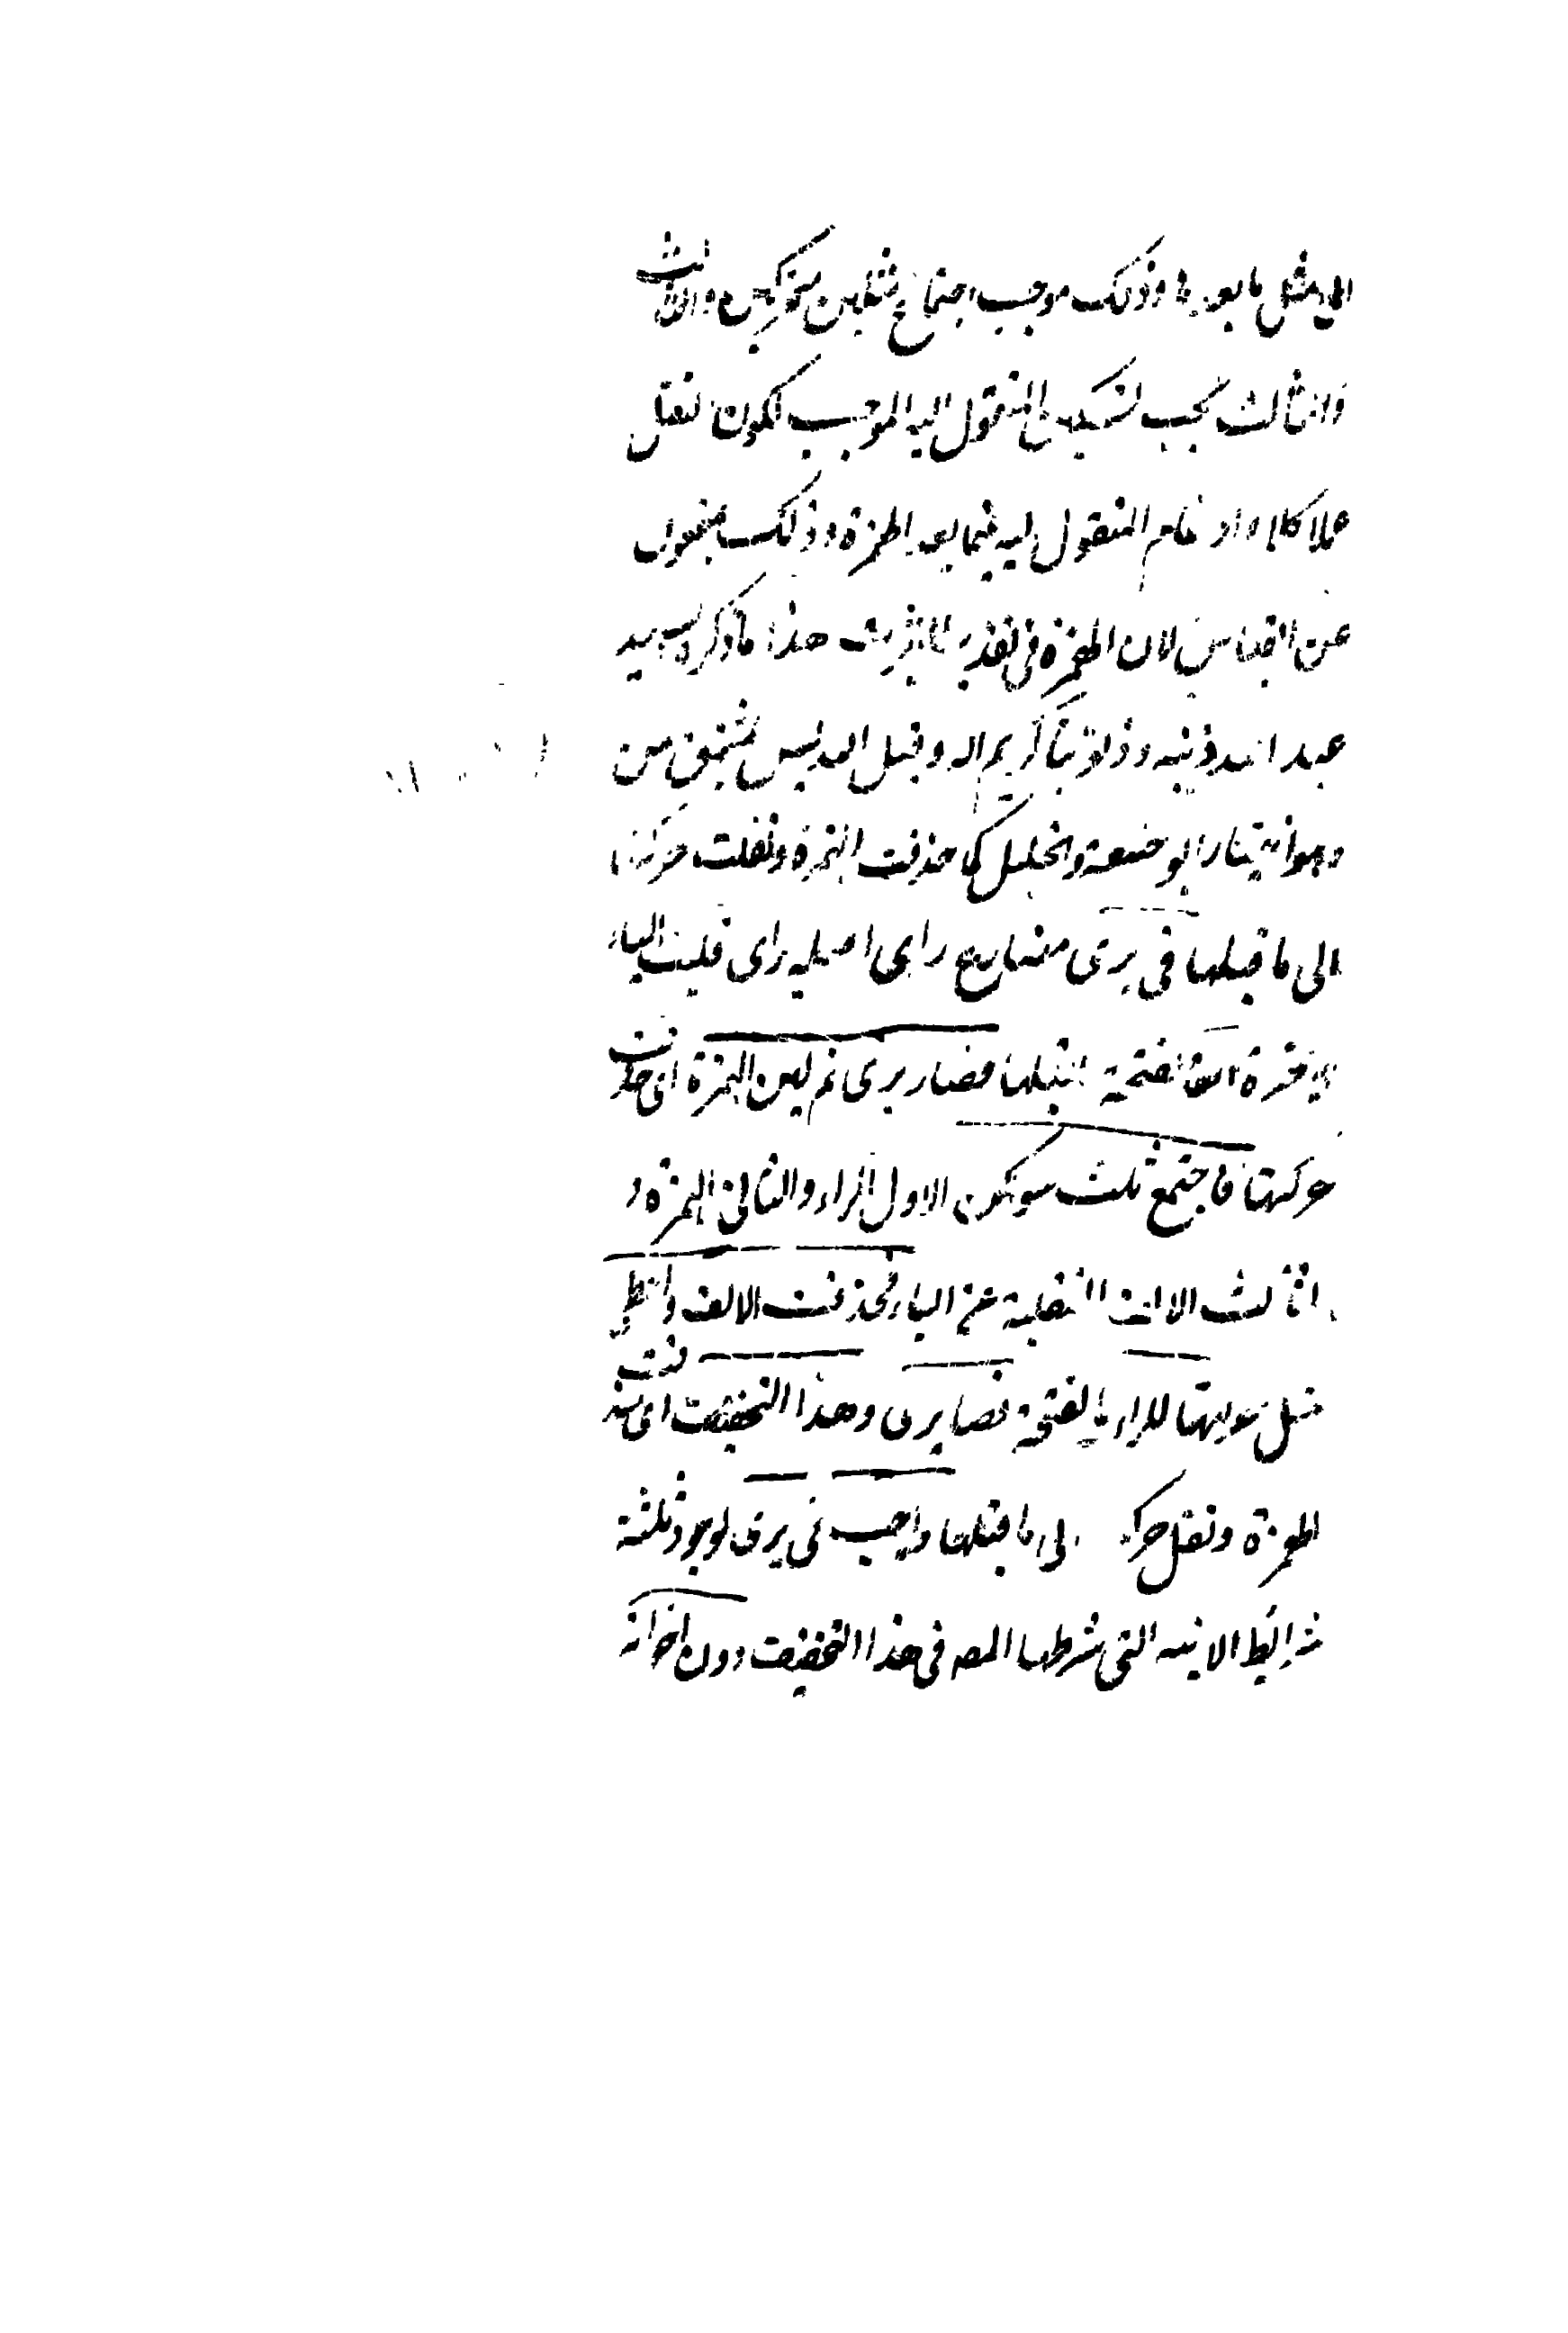 الى مثل ما بعدها وذلك موجب اجتماع مثلين متحركين والثالث
والثالث يجب تسكين المنقول اليه الموجب لكون نقل
عملا كلا وادغام المنقول اليه فيما بعد الهمزة وذلك بمعزول
عن القياس لان الهمزة فى تقدير الثابت هذا ما ذكره السيد
عبد الله وقيل اله ليس بمشتق من
وهو اختيار ابو حنيفة والخليل كما حذفت الهمزة ونقلت حركتها
الى ما قبلها فى يرى مضارع راى اصله يراى قلبت الياء
الفا لفتحة ما قبلها فصار يرى ثم لين الهمزة اى حذفت
حركتها فاجتمع ثلث سواكن الاول الراء والثانى الهمزة و
الثالث الالف المنقلبة عن الياء فحذفت الالف واعطى
حركتها للراء بالفتحة فصار يرى وهذا التخفيف اى حذفت
الهمزة ونقل حركة الى ما قبلها واجب فى يرى لوجود ثلثة
شرائط الاتية التى شرطها المص فى هذا التخفيف دون اخواته